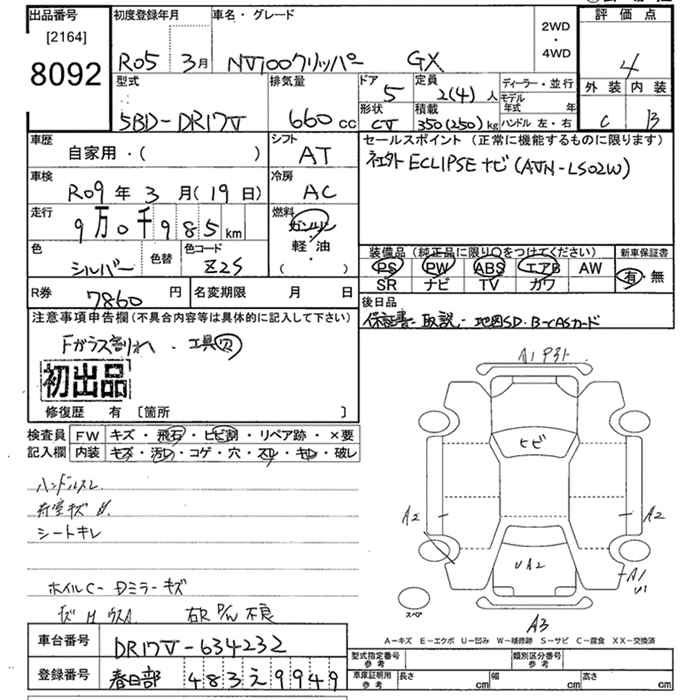 出品番号
[2164]
8092
初度登録年月
R05 3月
車名・グレード
NV100クリッパー GX
2WD
・
4WD
評価点
4
外装 内装
C B
型式
5BD-DR17V
排気量
660cc
ドア
5
定員
2(4)人
形状
CV
積載
350(250)kg
ディーラー・並行
モデル年式 年
ハンドル 左・右
車歴
自家用・( )
シフト
AT
車検
R09年3月(19日)
冷房
AC
走行
9万0千985km
燃料
ガソリン
軽・油
( )
色
シルバー
色替
色コード
Z2S
R券
7860円
名変期限 月 日
セールスポイント(正常に機能するものに限ります)
社外ECLIPSEナビ(AVN-LS02W)
装備品(純正品に限り〇をつけてください)
PS PW ABS エアB AW
SR ナビ TV カワ
新車保証書
有・無
後日品
保証書・取説・地図SD・B-CASカード
注意事項申告欄(不具合内容等は具体的に記入して下さい)
Fガラス割れ・工具
初出品
修復歴 有 [箇所 ]
検査員記入欄
FW キズ・飛石・ヒビ割・リペア跡・×要
内装 キズ・汚レ・コゲ・穴・スレ・キレ・破レ
ハンドルスレ
荷室キズ
シートキレ
ホイルC-Dミラーキズ
右R P/W不良
A1
ヒビ
A2
A2
UA2
A1
U1
スペア
A3
A-キズ E-エクボ U-凹み W-補修跡 S-サビ C-腐食 XX-交換済
車台番号
DR17V-634232
登録番号
春日部 483 え 9949
型式指定番号
参考
類別区分番号
参考
車庫証明用
参考
長さ cm
幅 cm
高さ cm